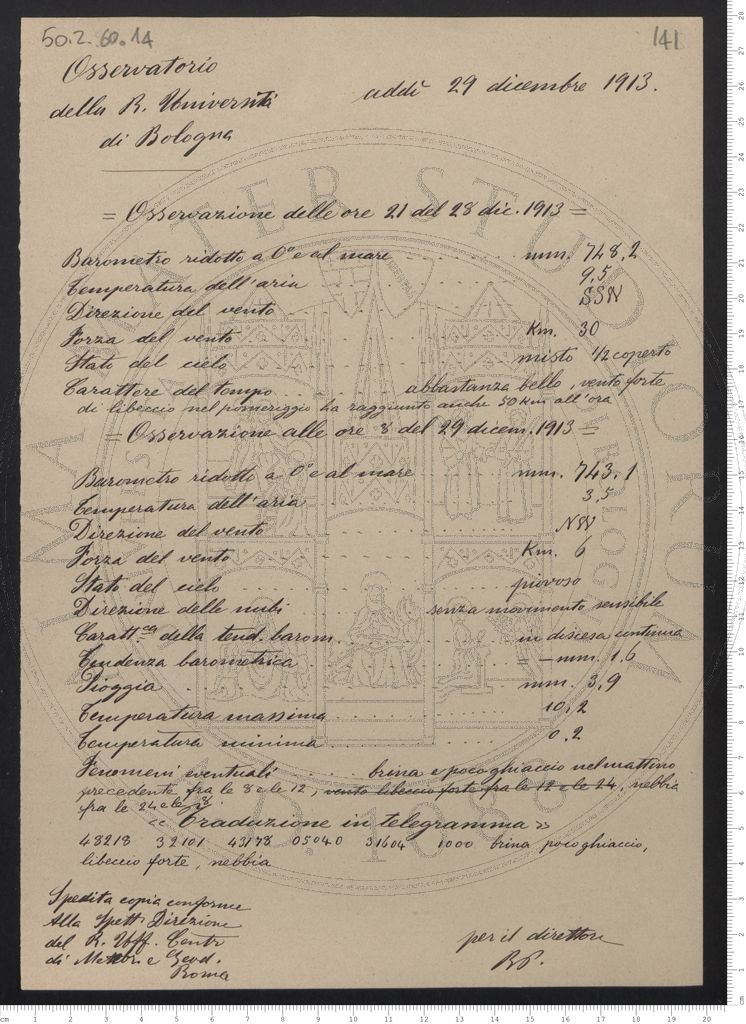 50.2. 60.14
141
Osservatorio
della R. Università
di Bologna
addì 29 dicembre 1913.
= Osservazione delle ore 21 del 28 dic. 1913 =
Barometro ridotto a 0° e al mare . . . . . . . mm. 748,2
Temperatura dell'aria . . . . . . . 9,5
Direzione del vento . . . . . . . SSW
Forza del vento . . . . . . . Km. 30
Stato del cielo . . . . . . . misto 1/2 coperto
Carattere del tempo . . . . . . . abbastanza bello, vento forte
di libeccio nel pomeriggio ha raggiunto anche 50 Km all'ora
= Osservazione alle ore 8 del 29 dicem. 1913 =
Barometro ridotto a 0° e al mare . . . . . . . mm. 743,1
Temperatura dell'aria . . . . . . . 3,5
Direzione del vento . . . . . . . NW
Forza del vento . . . . . . . Km. 6
Stato del cielo . . . . . . . piovoso
Direzione delle nubi . . . . . . . senza movimento sensibile
Caratt.ca della tend. barom. . . . . . . . in discesa continua
Tendenza barometrica . . . . . . . = - mm. 1,6
Pioggia . . . . . . . mm. 3,9
Temperatura massima . . . . . . . 10,2
Temperatura minima . . . . . . . 0,2
Fenomeni eventuali . . . . . . . brina e poco ghiaccio nel mattino
precedente fra le 8 e le 12, vento libeccio forte fra le 12 e le 24, nebbia
fra le 24 e le 8
« Traduzione in telegramma »
48218 32101 43178 05040 31604 1000 brina poco ghiaccio,
libeccio forte, nebbia
Spedita copia conforme
Alla Spett. Direzione
del R. Uff. Centr
di Meteor. e Geod.
Roma
per il direttore
ALMA MATER STUDIORUM
A.D. 1088